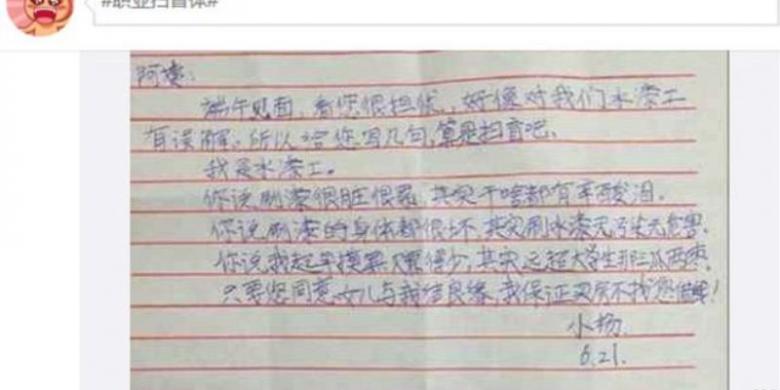 #职业扫盲体#
阿姨：
端午见面，看您很担忧，好像对我们水漆工
有误解。所以给您写几句，算是扫盲吧。
我是水漆工。
你说刷漆很脏很累，其实干啥都有辛酸泪。
你说刷漆的身体都很坏，其实刷水漆无污染无危害。
你说我起早摸黑只赚得少，其实远超大学生那三瓜两枣。
只要您同意女儿与我结良缘，我保证买房不找您借钱！
小杨
6.21.